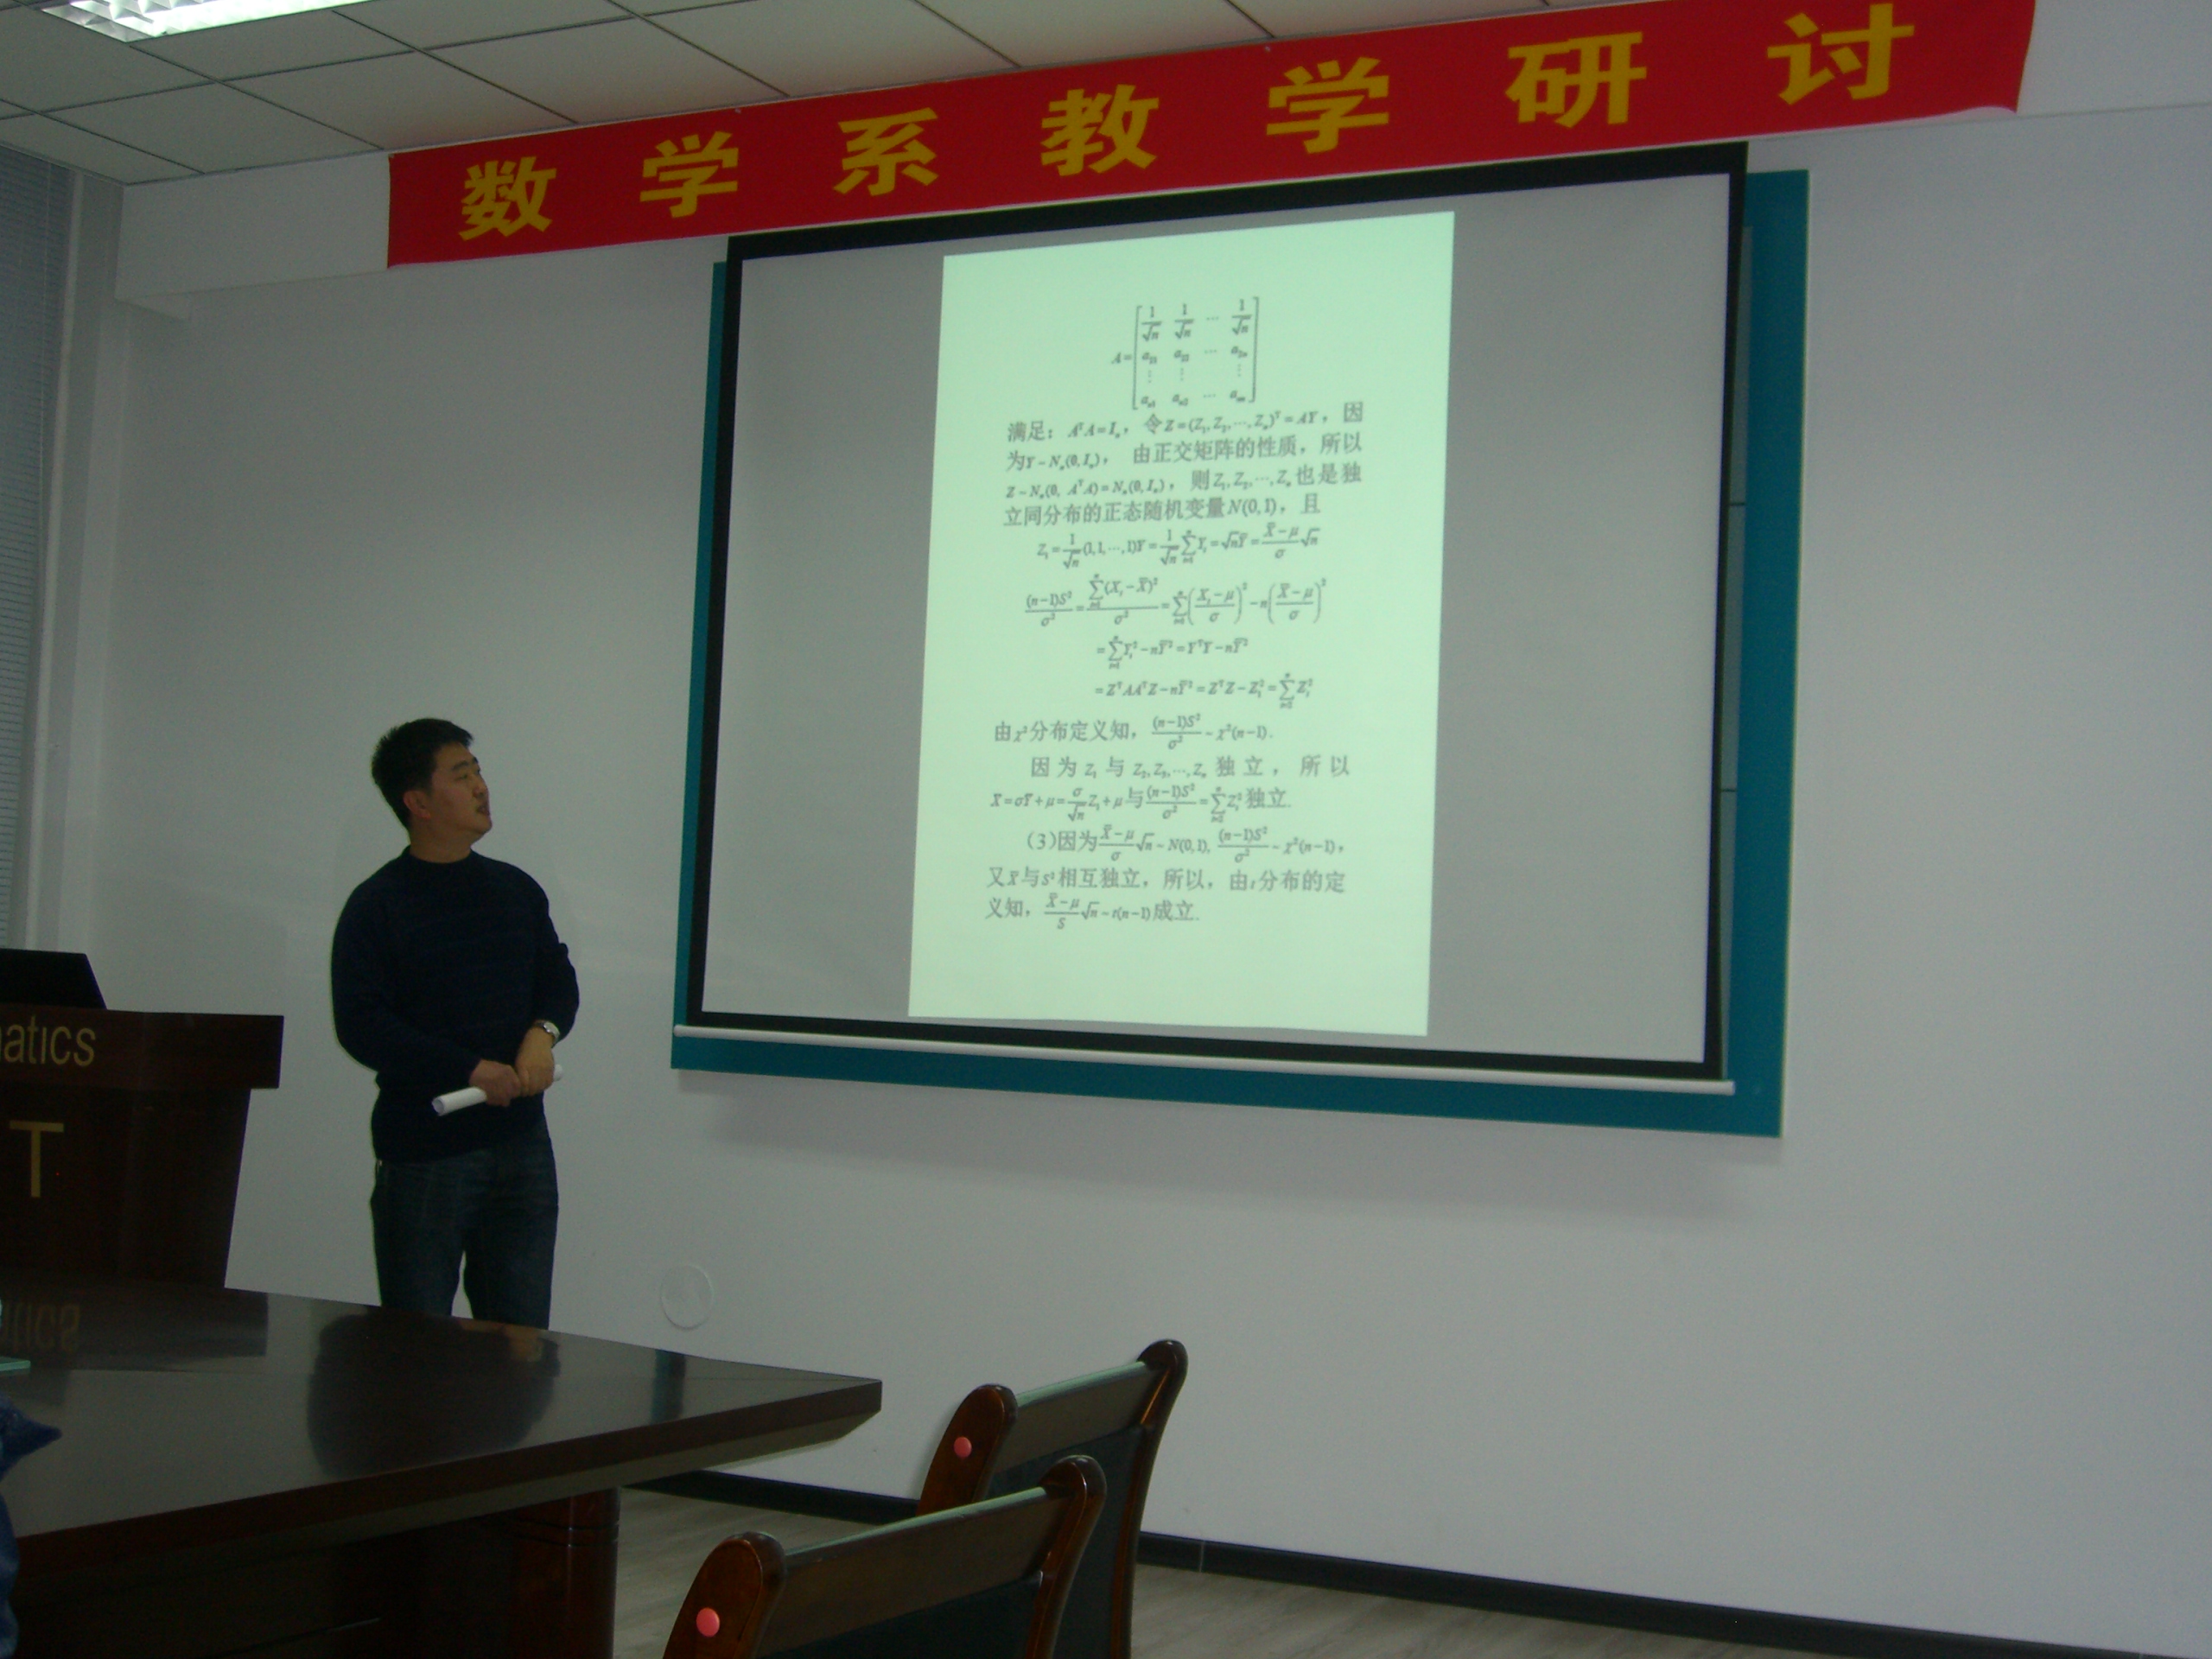 数学系教学研讨
A= [ 1/√n 1/√n ⋯ 1/√n
a₂₁ a₂₂ ⋯ a₂ₙ
⋮ ⋮ ⋮
aₙ₁ aₙ₂ ⋯ aₙₙ ]
满足：AᵀA=Iₙ，令Z=(Z₁,Z₂,⋯,Zₙ)ᵀ=AY，因
为Y~Nₙ(0,Iₙ)，由正交矩阵的性质，所以
Z~Nₙ(0, AᵀA)=Nₙ(0,Iₙ)，则Z₁,Z₂,⋯,Zₙ也是独
立同分布的正态随机变量N(0,1)，且
Z₁=1/√n(1,1,⋯,1)Y=1/√n∑ᵢ₌₁ⁿYᵢ=√nȲ=(X̄−μ)/σ√n
(n−1)S²/σ²=∑ᵢ₌₁ⁿ(Xᵢ−X̄)²/σ²=∑ᵢ₌₁ⁿ((Xᵢ−μ)/σ)²−n((X̄−μ)/σ)²
=∑ᵢ₌₁ⁿYᵢ²−nȲ²=YᵀY−nȲ²
=ZᵀAAᵀZ−nȲ²=ZᵀZ−Z₁²=∑ᵢ₌₂ⁿZᵢ²
由χ²分布定义知，(n−1)S²/σ²~χ²(n−1).
因为Z₁与Z₂,Z₃,⋯,Zₙ独立，所以
X̄=σȲ+μ=σ/√nZ₁+μ与(n−1)S²/σ²=∑ᵢ₌₂ⁿZᵢ²独立.
（3）因为(X̄−μ)/σ√n~N(0,1), (n−1)S²/σ²~χ²(n−1)，
又X̄与S²相互独立，所以，由t分布的定
义知，(X̄−μ)/S√n~t(n−1)成立.
atics
T